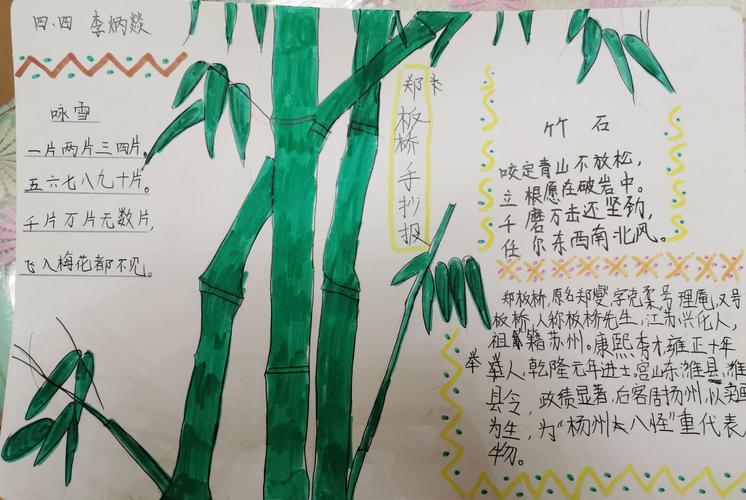 四.四 李炳燚
咏雪
一片两片三四片。
五六七八九十片。
千片万片无数片,
飞入梅花都不见。
郑板桥手抄报
竹石
咬定青山不放松,
立根愿在破岩中。
千磨万击还坚劲,
任尔东西南北风。
郑板桥,原名郑燮,字克柔号理庵,又号
板桥,人称板桥先生,江苏兴化人,
祖籍苏州。康熙秀才雍正十年
举人,乾隆元年进士。官山东潍县,潍
县令,政绩显著,后客居扬州,以卖画
为生,为“杨州八怪”重代表
物。